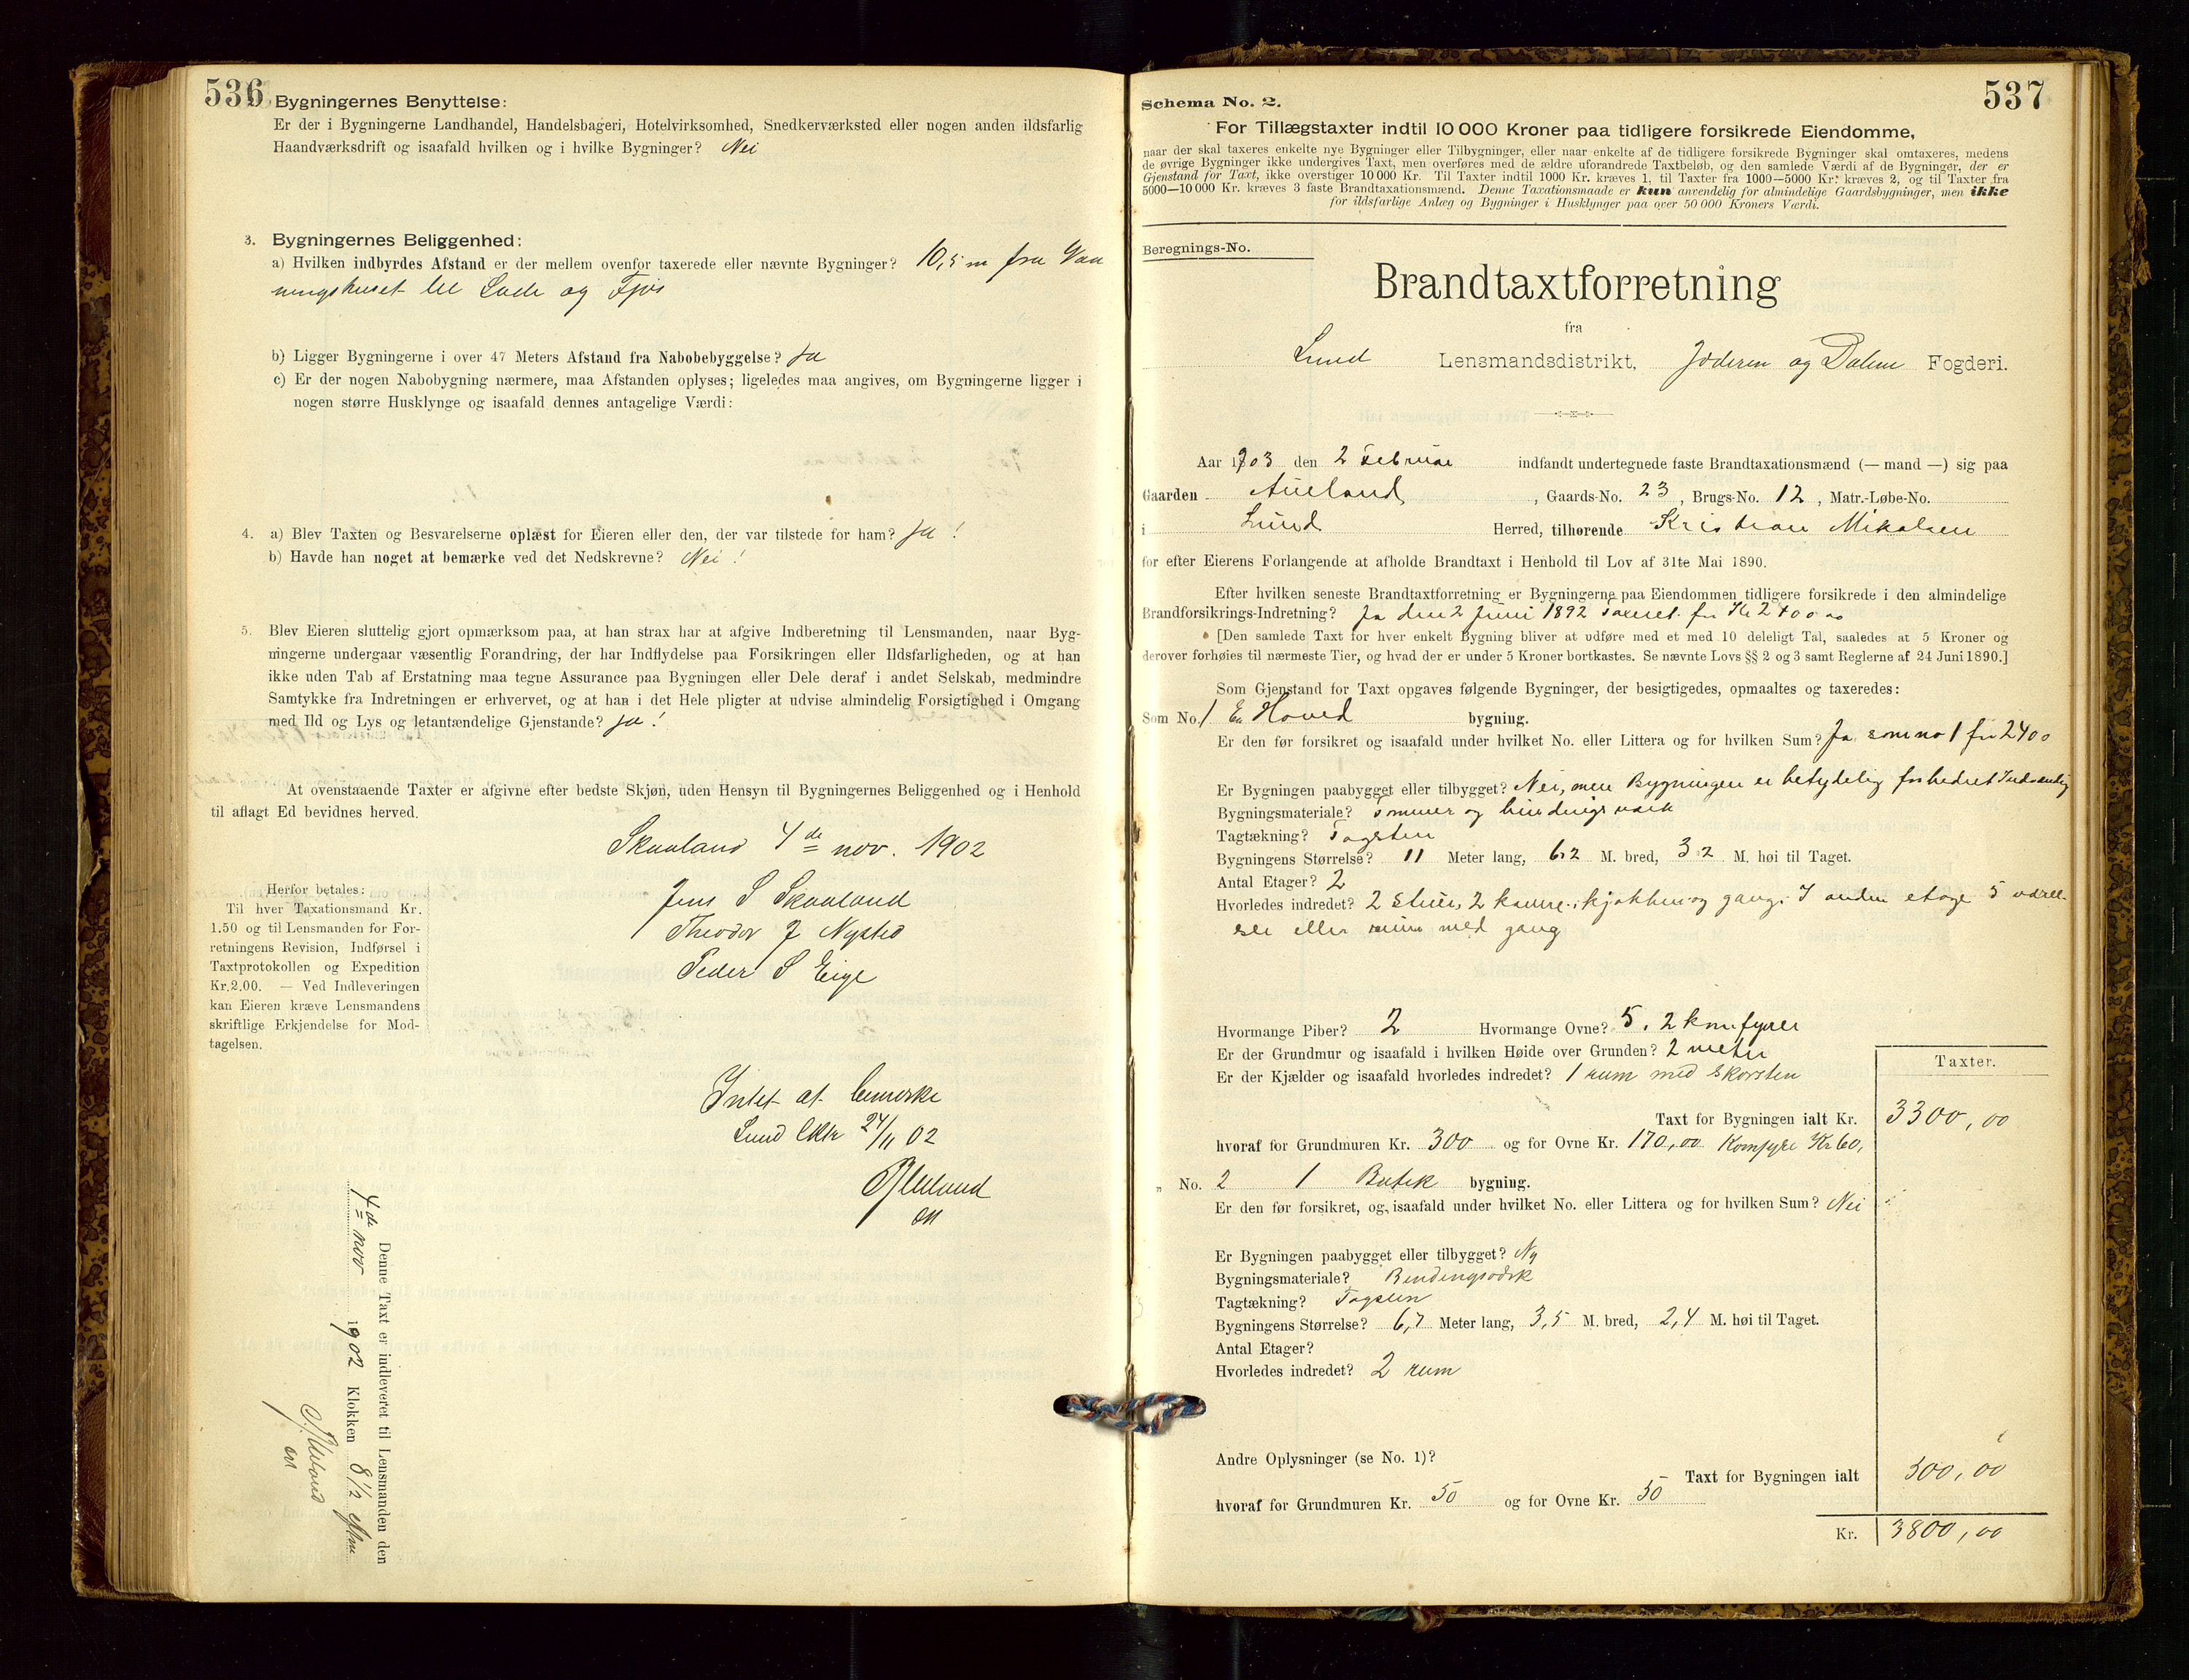 536
Bygningernes Benyttelse:
Er der i Bygningerne Landhandel, Handelsbageri, Hotelvirksomhed, Snedkerværksted eller nogen anden ildsfarlig
Haandværksdrift og isaafald hvilken og i hvilke Bygninger? Nei
3. Bygningernes Beliggenhed:
a) Hvilken indbyrdes Afstand er der mellem ovenfor taxerede eller nævnte Bygninger? 10,5 m fra Vaa
ningshuset til Lade og Fjøs
b) Ligger Bygningerne i over 47 Meters Afstand fra Nabobebyggelse? Ja
c) Er der nogen Nabobygning nærmere, maa Afstanden oplyses; ligeledes maa angives, om Bygningerne ligger i
nogen større Husklynge og isaafald dennes antagelige Værdi:
4. a) Blev Taxten og Besvarelserne oplæst for Eieren eller den, der var tilstede for ham? Ja!
b) Havde han noget at bemærke ved det Nedskrevne? Nei!
5. Blev Eieren sluttelig gjort opmærksom paa, at han strax har at afgive Indberetning til Lensmanden, naar Byg-
ningerne undergaar væsentlig Forandring, der har Indflydelse paa Forsikringen eller Ildsfarligheden, og at han
ikke uden Tab af Erstatning maa tegne Assurance paa Bygningen eller Dele deraf i andet Selskab, medmindre
Samtykke fra Indretningen er erhvervet, og at han i det Hele pligter at udvise almindelig Forsigtighed i Omgang
med Ild og Lys og letantændelige Gjenstande? Ja!
At ovenstaaende Taxter er afgivne efter bedste Skjøn, uden Hensyn til Bygningernes Beliggenhed og i Henhold
til aflagt Ed bevidnes herved.
Skaaland 4de nov. 1902
Jens S Skaaland
Theodor J Nysted
Peder S Eige
Herfor betales:
Til hver Taxationsmand Kr.
1.50 og til Lensmanden for For-
retningens Revision, Indførsel i
Taxtprotokollen og Expedition
Kr.2.00. — Ved Indleveringen
kan Eieren kræve Lensmandens
skriftlige Erkjendelse for Mod-
tagelsen.
Intet at bemærke
Lund 24/11 02
Denne Taxt er indleveret til Lensmanden den
4de nov 1902 Klokken 8 1/2 eftm
537
Schema No. 2.
For Tillægstaxter indtil 10 000 Kroner paa tidligere forsikrede Eiendomme,
naar der skal taxeres enkelte nye Bygninger eller Tilbygninger, eller naar enkelte af de tidligere forsikrede Bygninger skal omtaxeres, medens
de øvrige Bygninger ikke undergives Taxt, men overføres med de ældre uforandrede Taxtbeløb, og den samlede Værdi af de Bygninger, der er
Gjenstand for Taxt, ikke overstiger 10 000 Kr. Til Taxter indtil 1000 Kr. kræves 1, til Taxter fra 1000—5000 Kr. kræves 2, og til Taxter fra
5000—10 000 Kr. kræves 3 faste Brandtaxationsmænd. Denne Taxationsmaade er kun anvendelig for almindelige Gaardsbygninger, men ikke
for ildsfarlige Anlæg og Bygninger i Husklynger paa over 50 000 Kroners Værdi.
Beregnings-No.
Brandtaxtforretning
fra
Lund Lensmandsdistrikt, Jæderen og Dalene Fogderi.
Aar 1903 den 2 Februar indfandt undertegnede faste Brandtaxationsmænd (— mand —) sig paa
Gaarden Aueland, Gaards-No. 23, Brugs-No. 12, Matr.-Løbe-No.
i Lund Herred, tilhørende Kristian Mikalsen
for efter Eierens Forlangende at afholde Brandtaxt i Henhold til Lov af 31te Mai 1890.
Efter hvilken seneste Brandtaxtforretning er Bygningerne paa Eiendommen tidligere forsikrede i den almindelige
Brandforsikrings-Indretning? Ja den 2 Juni 1892 Taxeret for Kr 2400 00
[Den samlede Taxt for hver enkelt Bygning bliver at udføre med et med 10 deleligt Tal, saaledes at 5 Kroner og
derover forhøies til nærmeste Tier, og hvad der er under 5 Kroner bortkastes. Se nævnte Lovs §§ 2 og 3 samt Reglerne af 24 Juni 1890.]
Som Gjenstand for Taxt opgaves følgende Bygninger, der besigtigedes, opmaaltes og taxeredes:
Som No. 1 En Hoved bygning.
Er den før forsikret og isaafald under hvilket No. eller Littera og for hvilken Sum? Ja som no 1 for 2400
Er Bygningen paabygget eller tilbygget? Nei, men Bygningen er betydelig forbedret Indvendig
Bygningsmateriale? Tømmer og bindingsværk
Tagtækning? Tagsten
Bygningens Størrelse? 11 Meter lang, 6,2 M. bred, 3,2 M. høi til Taget.
Antal Etager? 2
Hvorledes indredet? 2 Stuer, 2 kamre, kjøkken og gang. I anden etage 5 værel-
ser eller rum med gang
Hvormange Piber? 2 Hvormange Ovne? 5. 2 komfyrer
Er der Grundmur og isaafald i hvilken Høide over Grunden? 2 meter
Er der Kjælder og isaafald hvorledes indredet? 1 rum med Skorsten
Taxter.
Taxt for Bygningen ialt Kr. 3300,00
hvoraf for Grundmuren Kr. 300 og for Ovne Kr. 170,00 Komfyre Kr 60,
" No. 2 1 Butik bygning.
Er den før forsikret, og isaafald under hvilket No. eller Littera og for hvilken Sum? Nei
Er Bygningen paabygget eller tilbygget? Ny
Bygningsmateriale? Bindingsværk
Tagtækning? Tagsten
Bygningens Størrelse? 6,7 Meter lang, 3,5 M. bred, 2,4 M. høi til Taget.
Antal Etager?
Hvorledes indredet? 2 rum
Andre Oplysninger (se No. 1)?
Taxt for Bygningen ialt 500,00
hvoraf for Grundmuren Kr. 50 og for Ovne Kr. 50
Kr. 3800,00